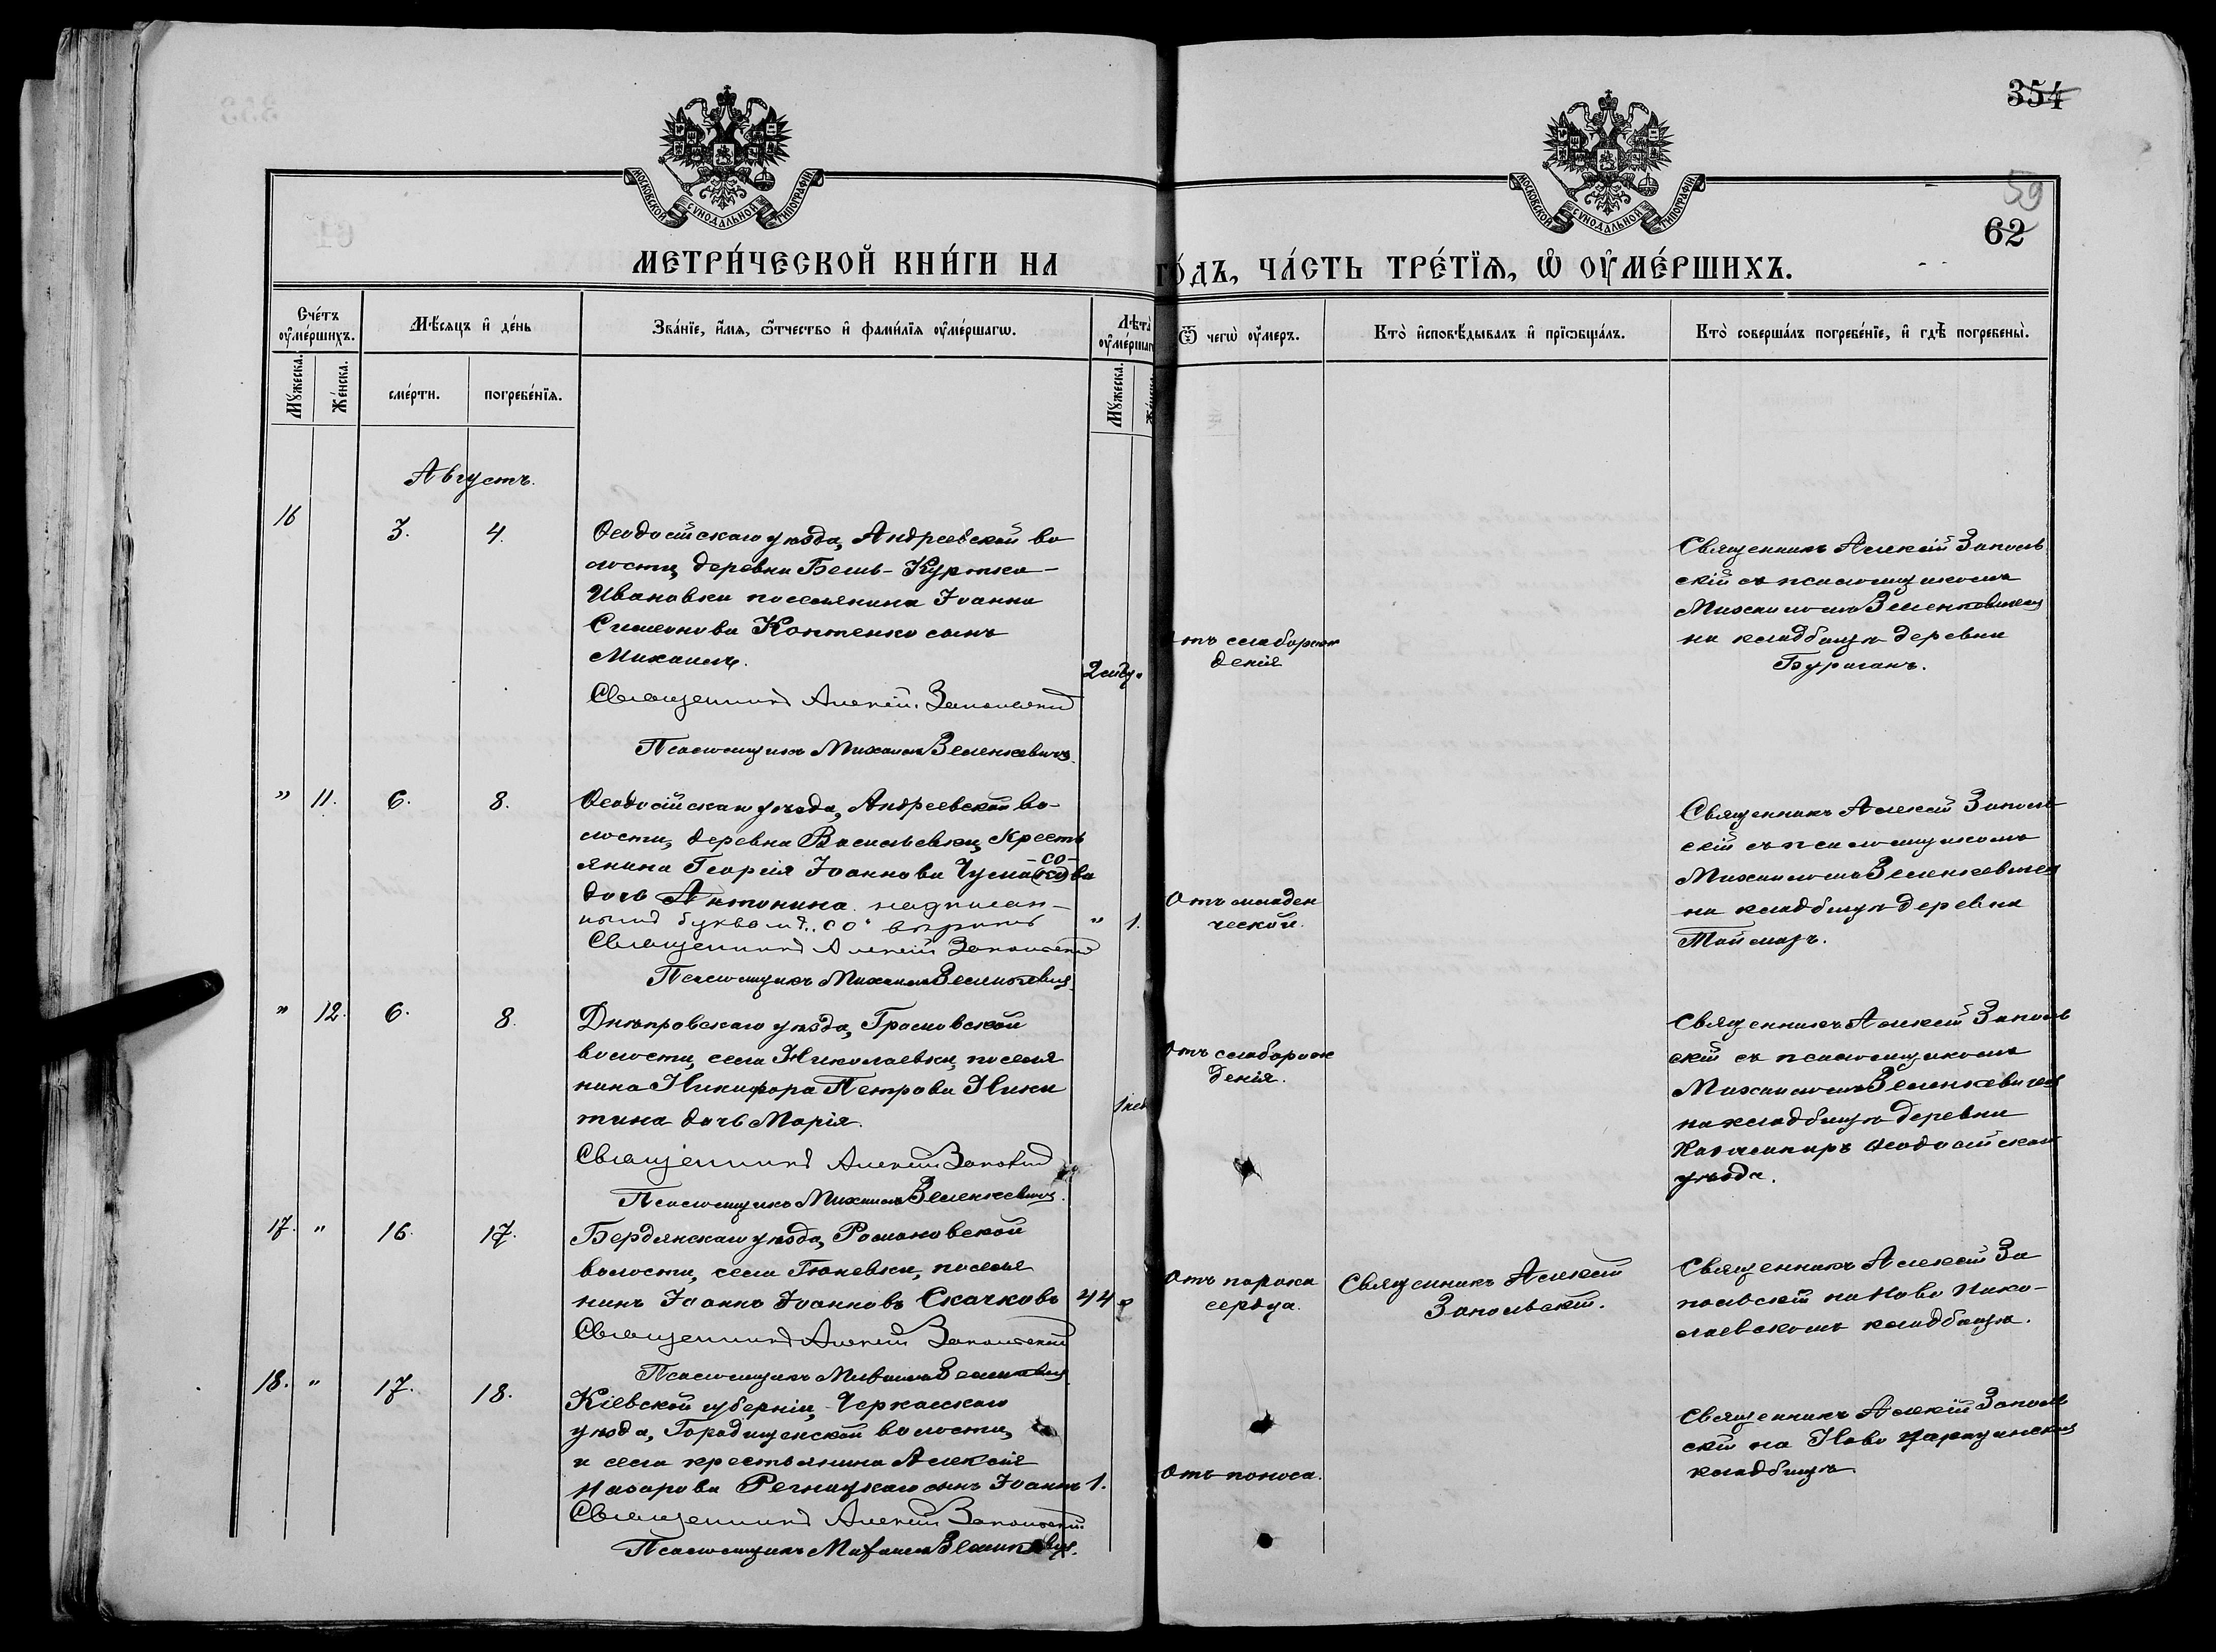 354
59
62
МОСКОВСКОЙ СѴНОДАЛЬНОЙ ТИПОГРАФІИ
МОСКОВСКОЙ СѴНОДАЛЬНОЙ ТИПОГРАФІИ
МЕТРИ́ЧЕСКОЙ КНИ́ГИ НА ГО́ДЪ, ЧА́СТЬ ТРЕ́ТЇѦ, Ѡ҆ ОУ҆МЕ́РШИХЪ.
Сче́тъ оу҆ме́ршихъ.
Мꙋ́жеска.
Же́нска.
Мѣ́сѧцъ и҆ де́нь
сме́рти.
погребе́нїѧ.
Зва́нїе, и҆́мѧ, ѻ҆́тчество и҆ фами́лїѧ оу҆ме́ршагѡ.
Лѣ́та оу҆ме́ршаг
Мꙋ́жеска.
Ѿ чегѡ̀ оу҆́меръ.
Кто̀ и҆сповѣ́дывалъ и҆ прїѡбща́лъ.
Кто̀ соверша́лъ погребе́нїе, и҆ гдѣ̀ погребены̀.
Августъ.
16
3.
4.
Ѳеодосійскаго уѣзда, Андреевской во
лости, деревни Бешъ-Куртка-
Ивановки поселянина Іоанна
Симеонова Коптенко сынъ
Михаилъ.
Священникъ Алексій Запольскій
Псаломщикъ Михаилъ Зеленкевичъ.
Отъ слаборож
денія
Священникъ Алексій Заполь
скій съ псаломщикомъ
Михаиломъ Зеленкевичемъ
на кладбищѣ деревни
Бураганъ.
"
11.
6.
8.
Ѳеодосійскаго уѣзда, Андреевской во-
лости, деревни Васильевки, Кресть
янина Георгія Іоаннова
дочь Антонина надписан-
нымъ буквамъ „со" вѣрить
Священникъ Алексій Запольскій
Псаломщикъ Михаилъ Зеленкевичъ.
"
1.
Отъ младен
ческой.
Священникъ Алексій Заполь
скій съ псаломщикомъ
Михаиломъ Зеленкевичемъ
на кладбищѣ деревни
"
12.
6.
8.
Днѣпровскаго уѣзда, Громовской
волости, села Николаевки, поселя
нина Никифора Петрова Ники
тина дочь Марія.
Священникъ Алексій Запольскій
Псаломщикъ Михаилъ Зеленкевичъ.
1 нед
Отъ слаборож
денія.
Священникъ Алексій Заполь
скій съ псаломщикомъ
Михаиломъ Зеленкевичемъ
на кладбищѣ деревни
Ѳеодосійскаго
уѣзда.
17.
"
16.
17.
Бердянскаго уѣзда, Романовской
волости, села Гюневки, поселя
нинъ Іоаннъ Іоанновъ Скачковъ
Священникъ Алексій Запольскій
Псаломщикъ Михаилъ Зеленкевичъ
44
Отъ порока
сердца.
Священникъ Алексій
Запольскій.
Священникъ Алексій За
польскій на Ново Нико-
лаевскомъ кладбищѣ.
18.
"
17.
18.
Кіевской губерніи, Черкасскаго
уѣзда, Городищенской волости,
и села крестьянина Алексія
Назарова сынъ Іоаннъ
Священникъ Алексій Запольскій
Псаломщикъ Михаилъ Зеленкевичъ.
1.
Отъ поноса.
Священникъ Алексій Заполь
скій на Ново Царицынскомъ
кладбищѣ